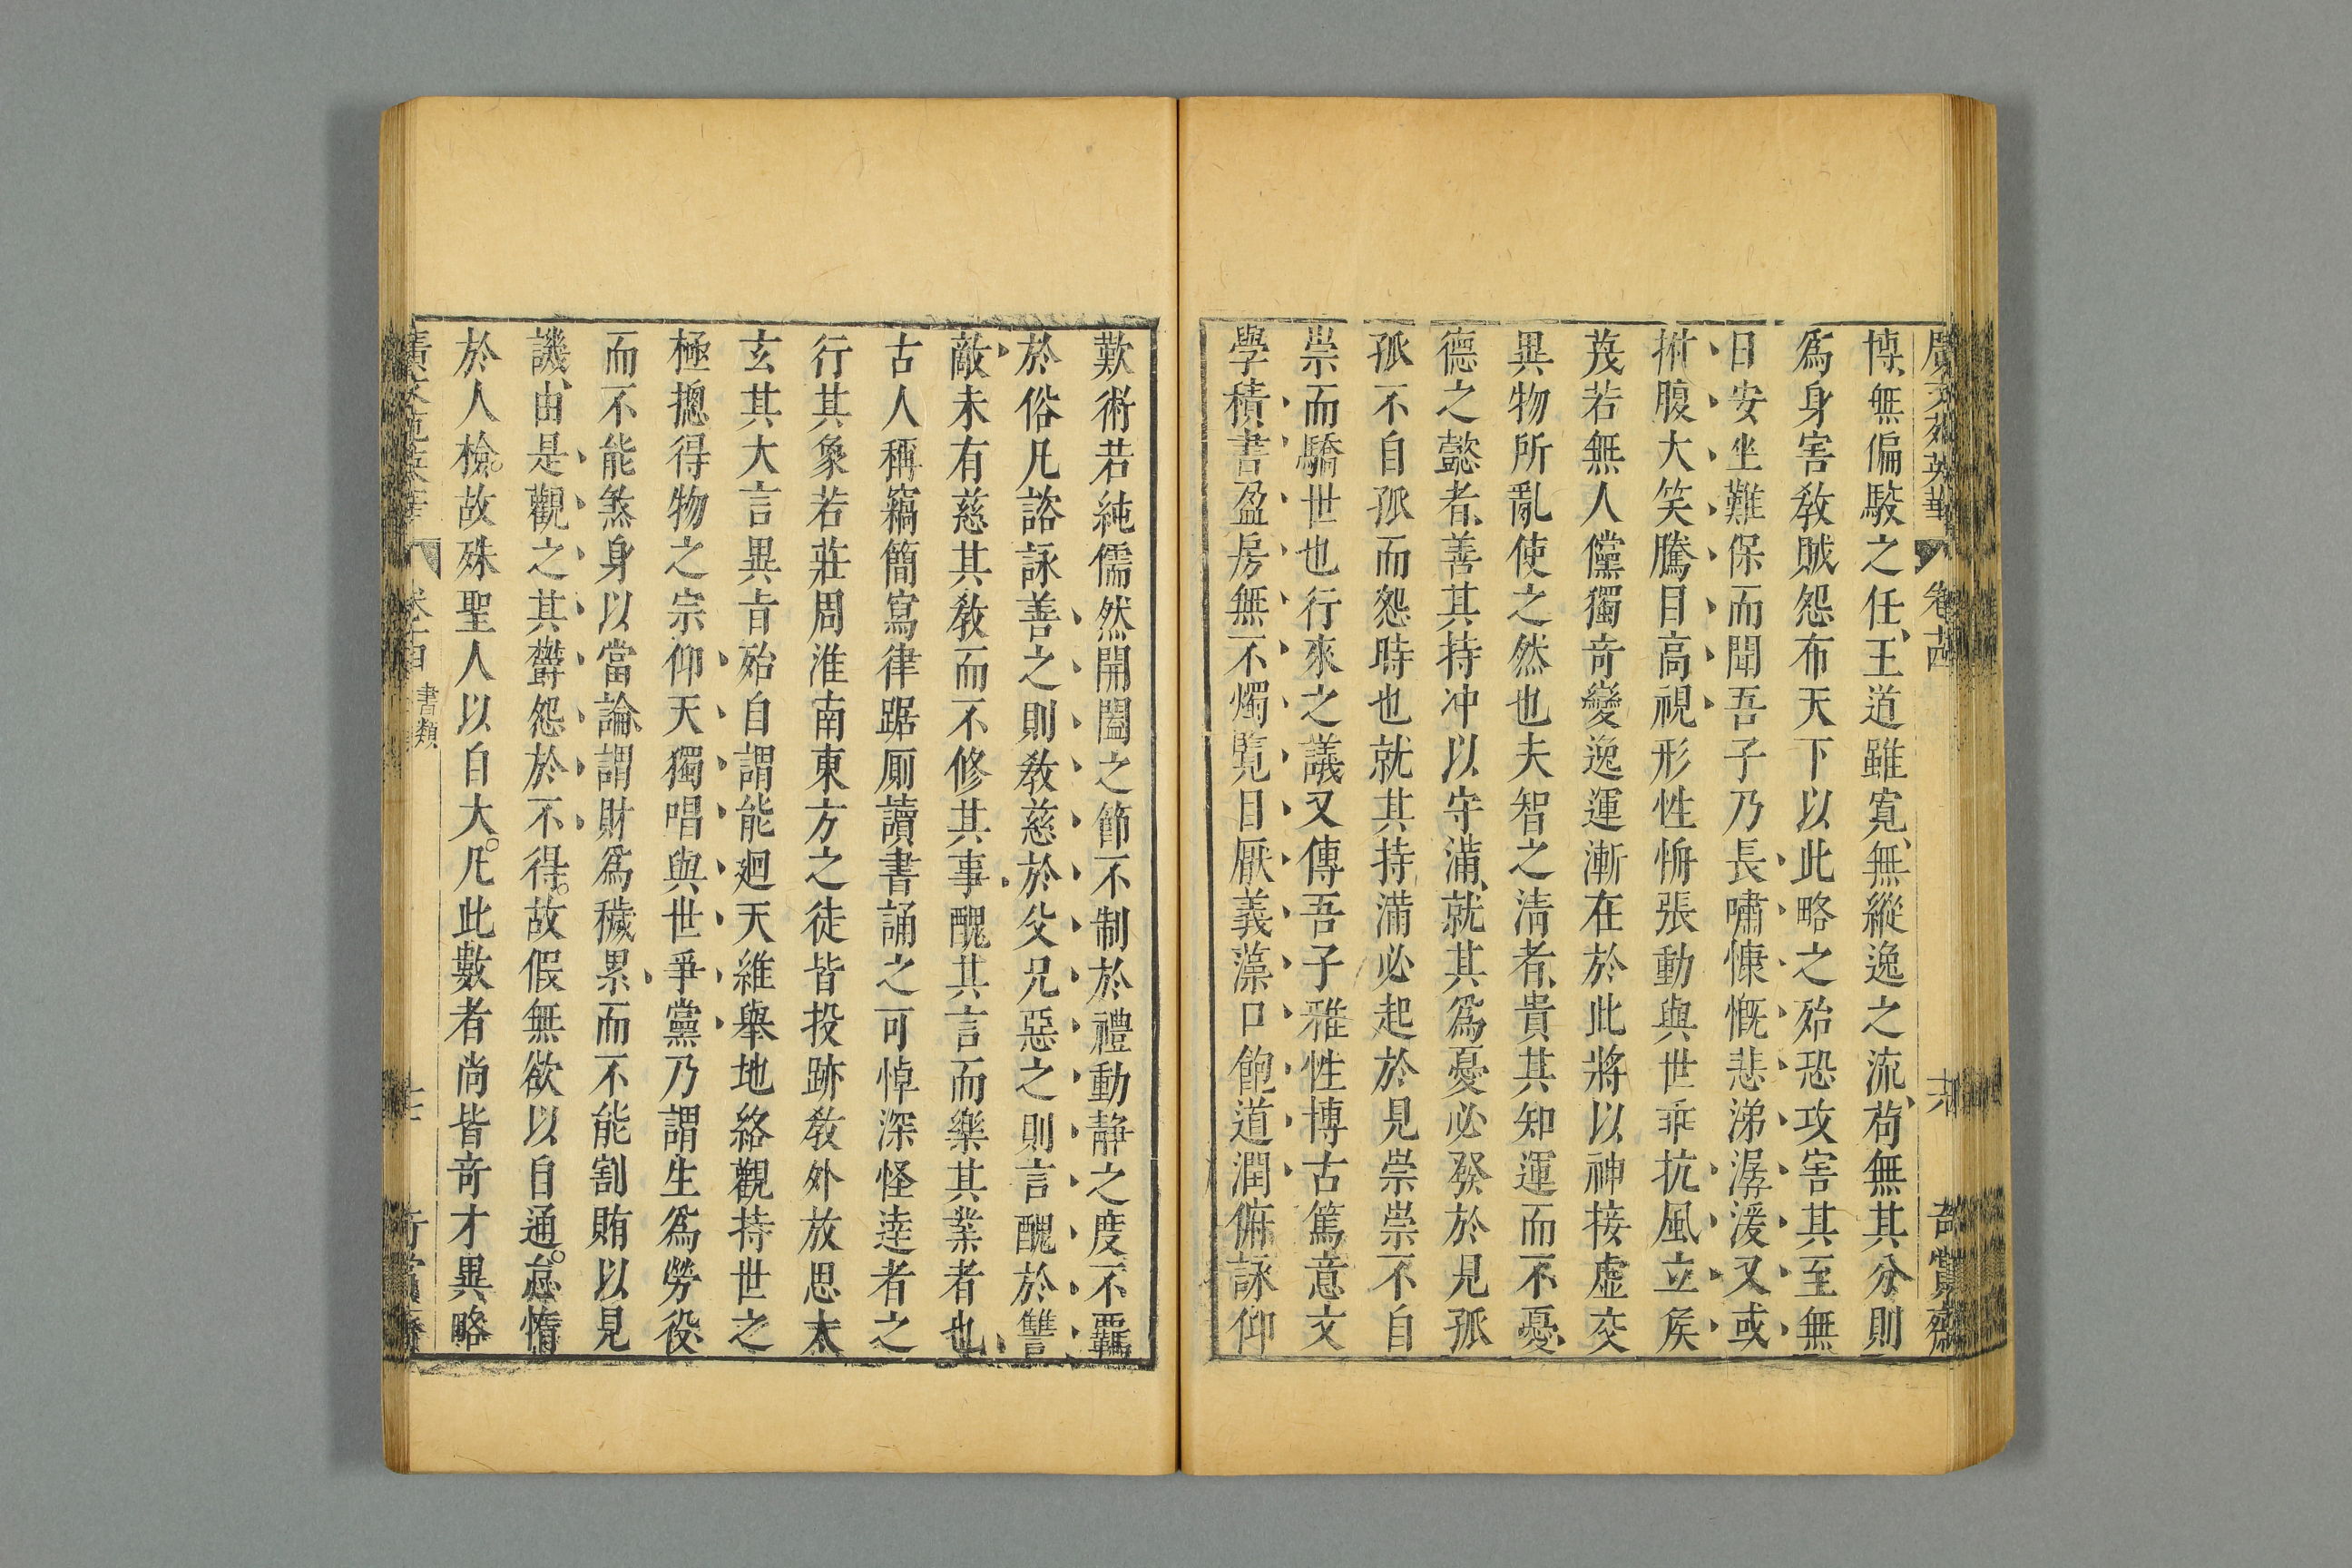 廣文苑英華 卷十四 十六 奇賞齋
博無偏駁之任王道雖寬無縱逸之流苟無其分則
爲身害敎賊怨布天下以此略之殆恐攻害其至無
日安坐難保而聞吾子乃長嘯慷慨悲涕潺湲又或
拊腹大笑騰目高視形性㑃張動與世乖抗風立矦
蔑若無人儻獨奇變逸運漸在於此將以神接虛交
異物所亂使之然也夫智之清者貴其知運而不憂
德之懿者善其持沖以守滿就其爲憂必發於見孤
孤不自孤而怨時也就其持滿必起於見崇崇不自
崇而驕世也行來之議又傳吾子雅性博古篤意文
學積書盈房無不燭覽目厭義藻口飽道潤俯詠仰
歎術若純儒然開闔之節不制於禮動靜之度不羈
於俗凡諮詠善之則敎慈於父兄惡之則言醜於讐
敵未有慈其敎而不修其事醜其言而樂其業者也
古人稱竊簡寫律踞厠讀書誦之可悼深怪達者之
行其象若莊周淮南東方之徒皆投跡敎外放思太
玄其大言異旨殆自謂能廻天維舉地絡觀持世之
極摠得物之宗仰天獨唱與世爭黨乃謂生爲勞役
而不能煞身以當論謂財爲穢累而不能割賄以見
譏由是觀之其欝怨於不得故假無欲以自通怠惰
於人檢故殊聖人以自大凡此數者尚皆奇才異略
書類